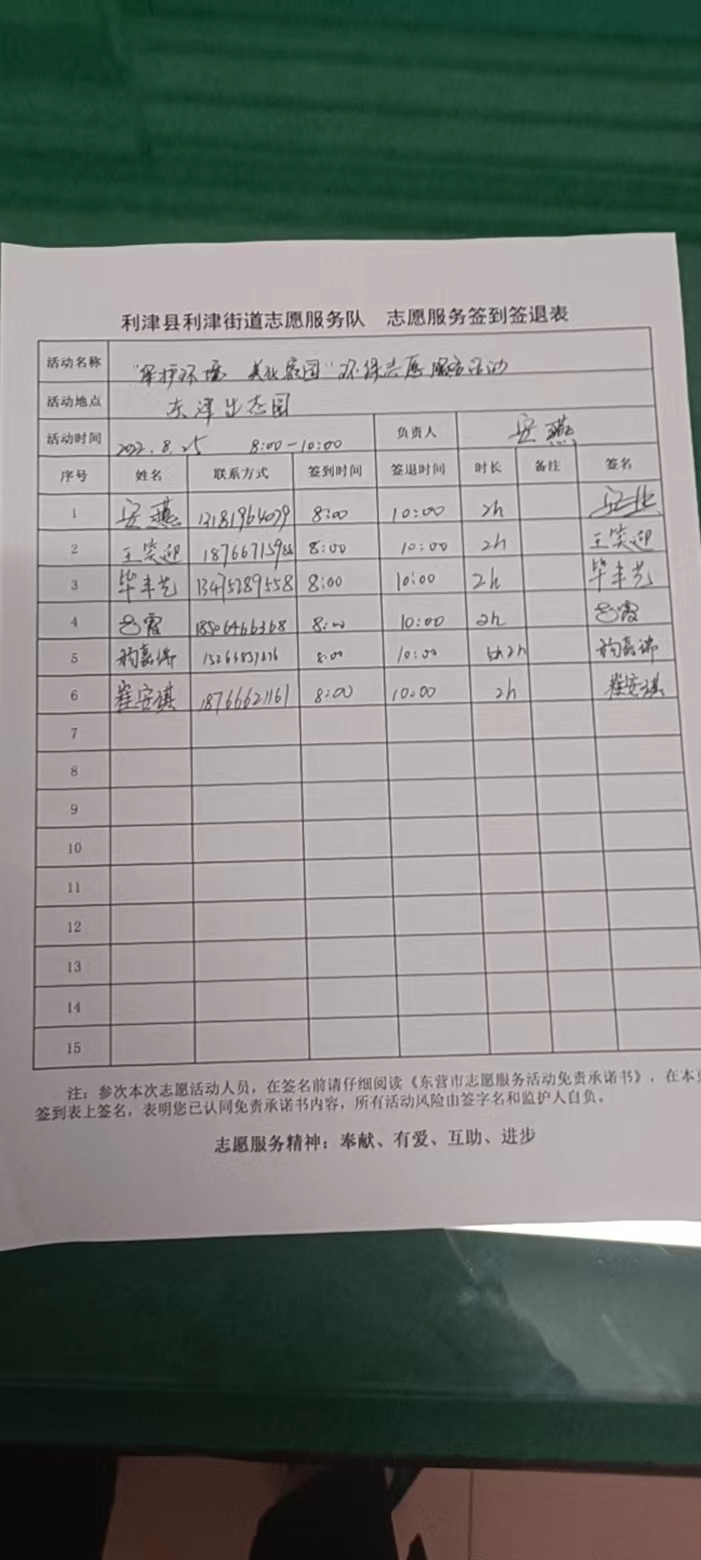 利津县利津街道志愿服务队 志愿服务签到签退表
活动名称 "保护环境 美化家园"环保志愿服务活动
活动地点 东津生态园
活动时间 2022.8.25 8:00-10:00 负责人 安燕
序号 姓名 联系方式 签到时间 签退时间 时长 备注 签名
1 安燕 13181964079 8:00 10:00 2h
2 王笑迎 8:00 10:00 2h 王笑迎
3 毕丰艺 13475289558 8:00 10:00 2h 毕丰艺
4 吕霞 18506466368 8:00 10:00 2h 吕霞
5 8:00 10:00 2h
6 崔安琪 18766621161 8:00 10:00 2h 崔安琪
7
8
9
10
11
12
13
14
15
注：参次本次志愿活动人员，在签名前请仔细阅读《东营市志愿服务活动免责承诺书》，在本页
签到表上签名，表明您已认同免责承诺书内容，所有活动风险由签字名和监护人自负。
志愿服务精神：奉献、有爱、互助、进步